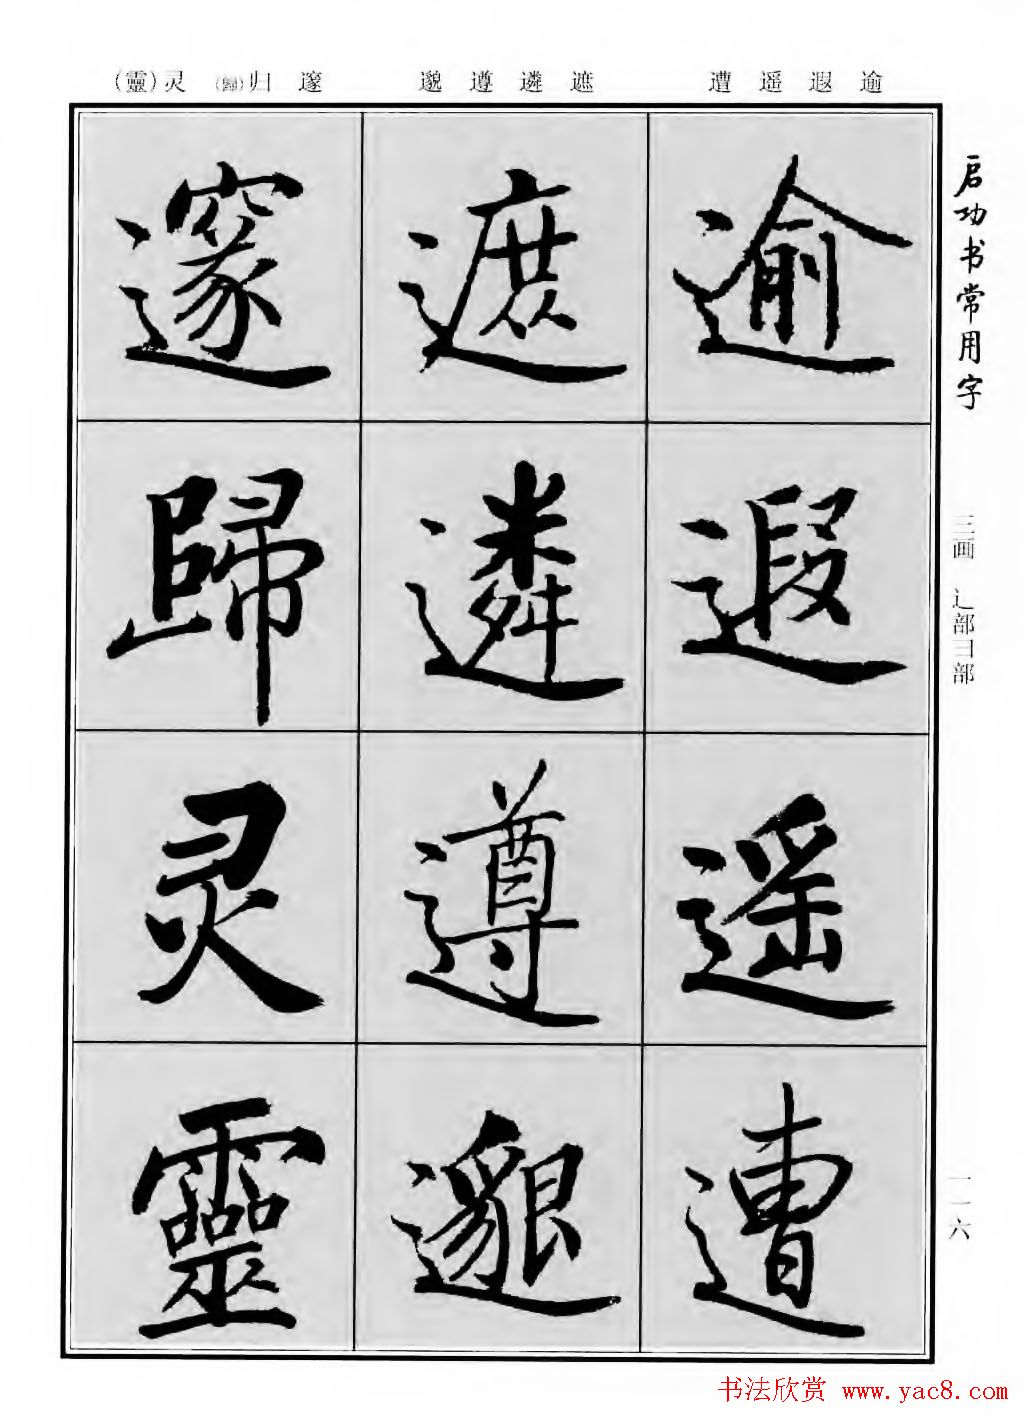 逾 遐 遥 遭 遮 遴 遵 邈 邃 归(歸) 灵(靈)
启功书常用字
三画 辶部彐部
一一六
逾遐遥遭
遮遴遵邈
邃歸灵靈
书法欣赏 www.yac8.com